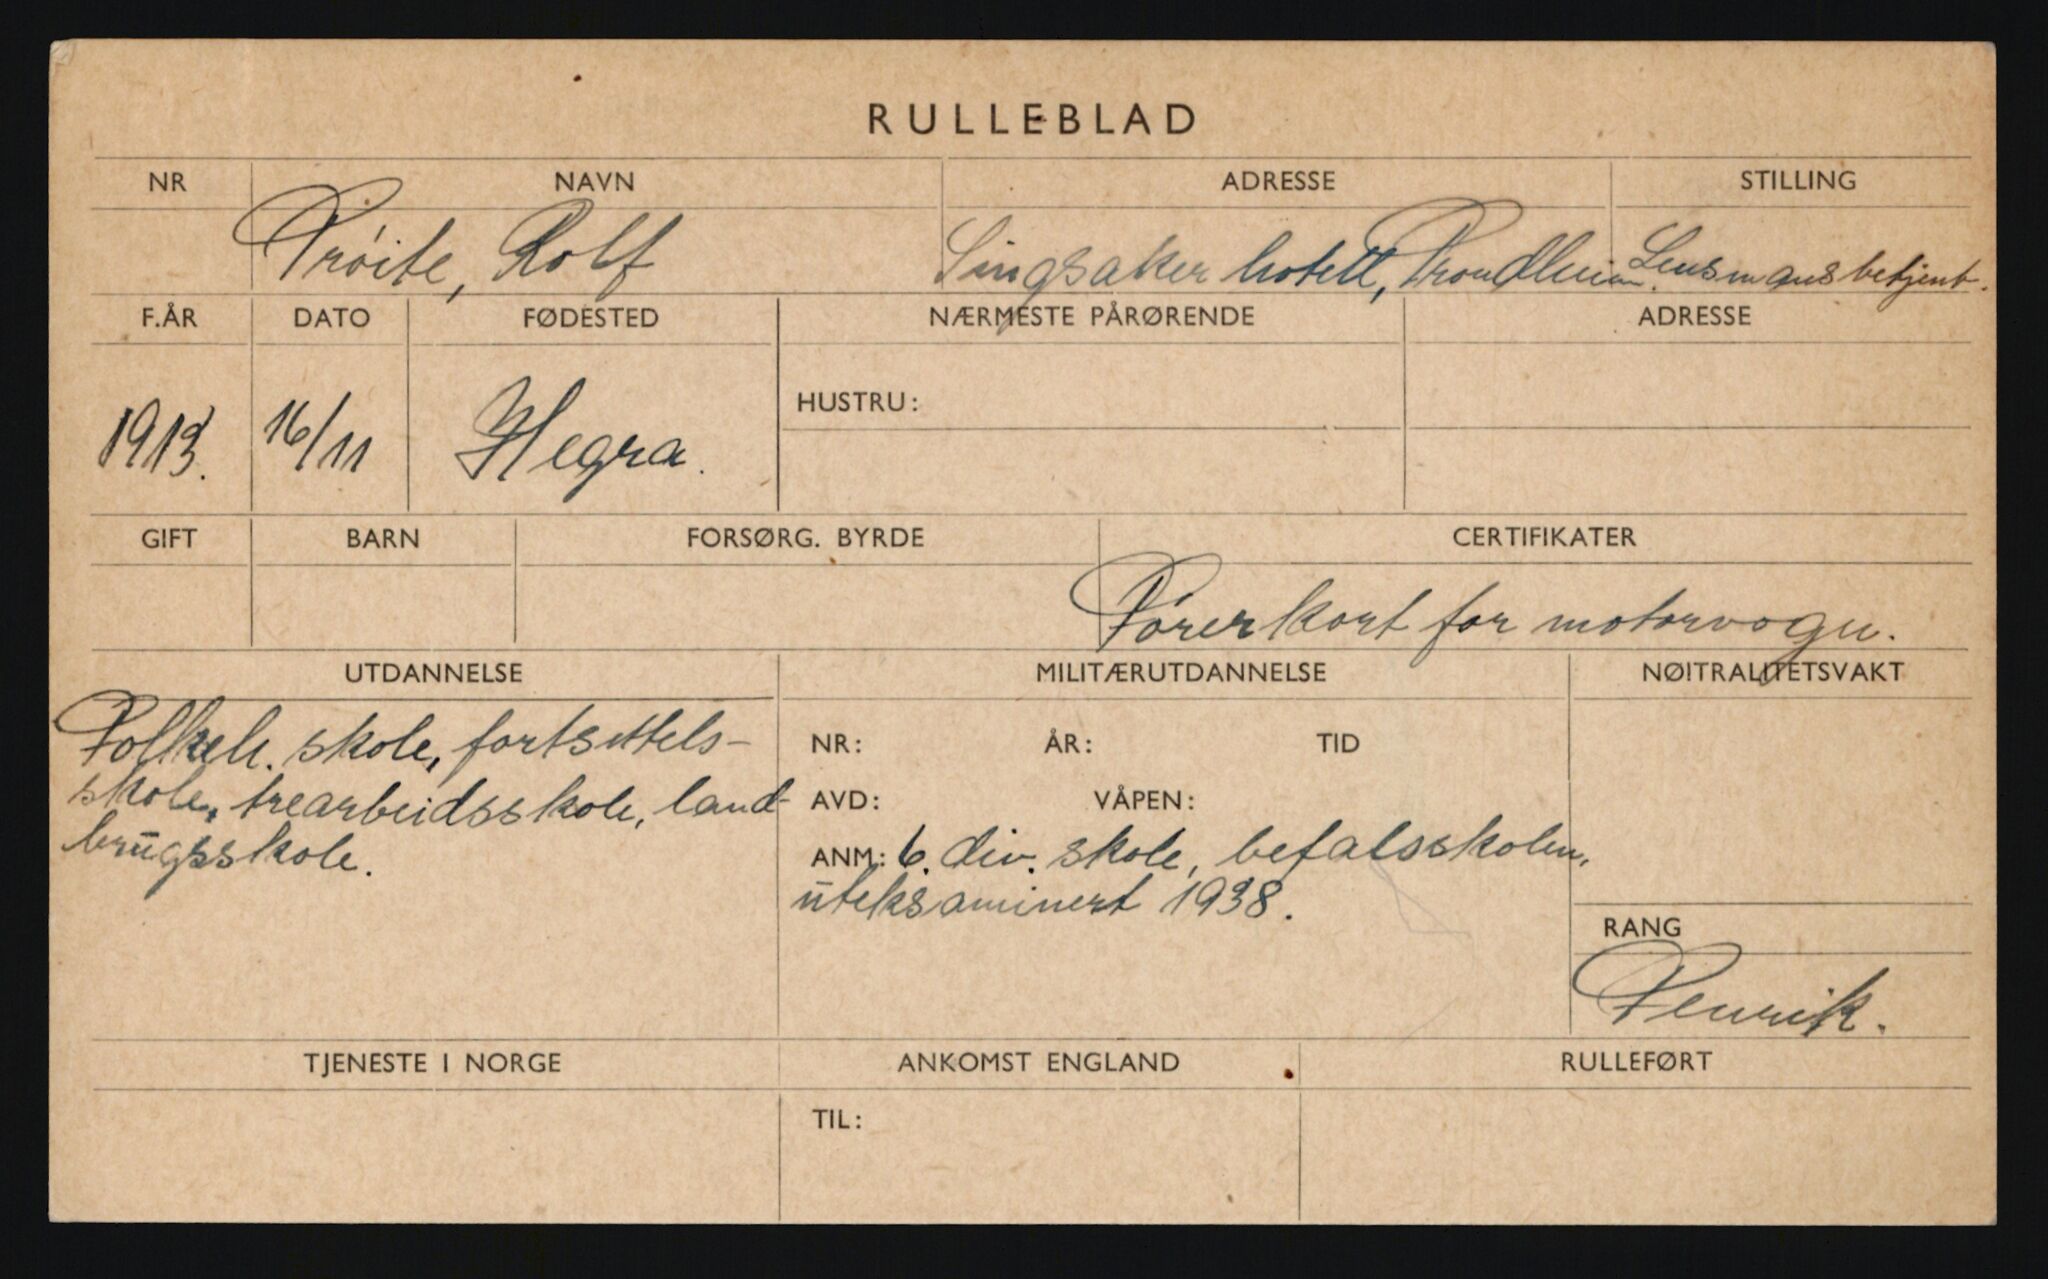 RULLEBLAD
NR NAVN ADRESSE STILLING
Trøite, Rolf Singsaker hotell, Trondheim. Lensmansbetjent.
F.ÅR DATO FØDESTED NÆRMESTE PÅRØRENDE ADRESSE
HUSTRU:
1913. 16/11 Hegra.
GIFT BARN FORSØRG. BYRDE CERTIFIKATER
Førerkort for motorvogn.
UTDANNELSE MILITÆRUTDANNELSE NØITRALITETSVAKT
Folkeh. skole, fortsettels-
skole, trearbeidsskole, land-
brugsskole.
NR: ÅR: TID
AVD: VÅPEN:
ANM: 6. div. skole, befalsskolen,
uteksaminert 1938.
RANG
Fenrik.
TJENESTE I NORGE ANKOMST ENGLAND RULLEFØRT
TIL: